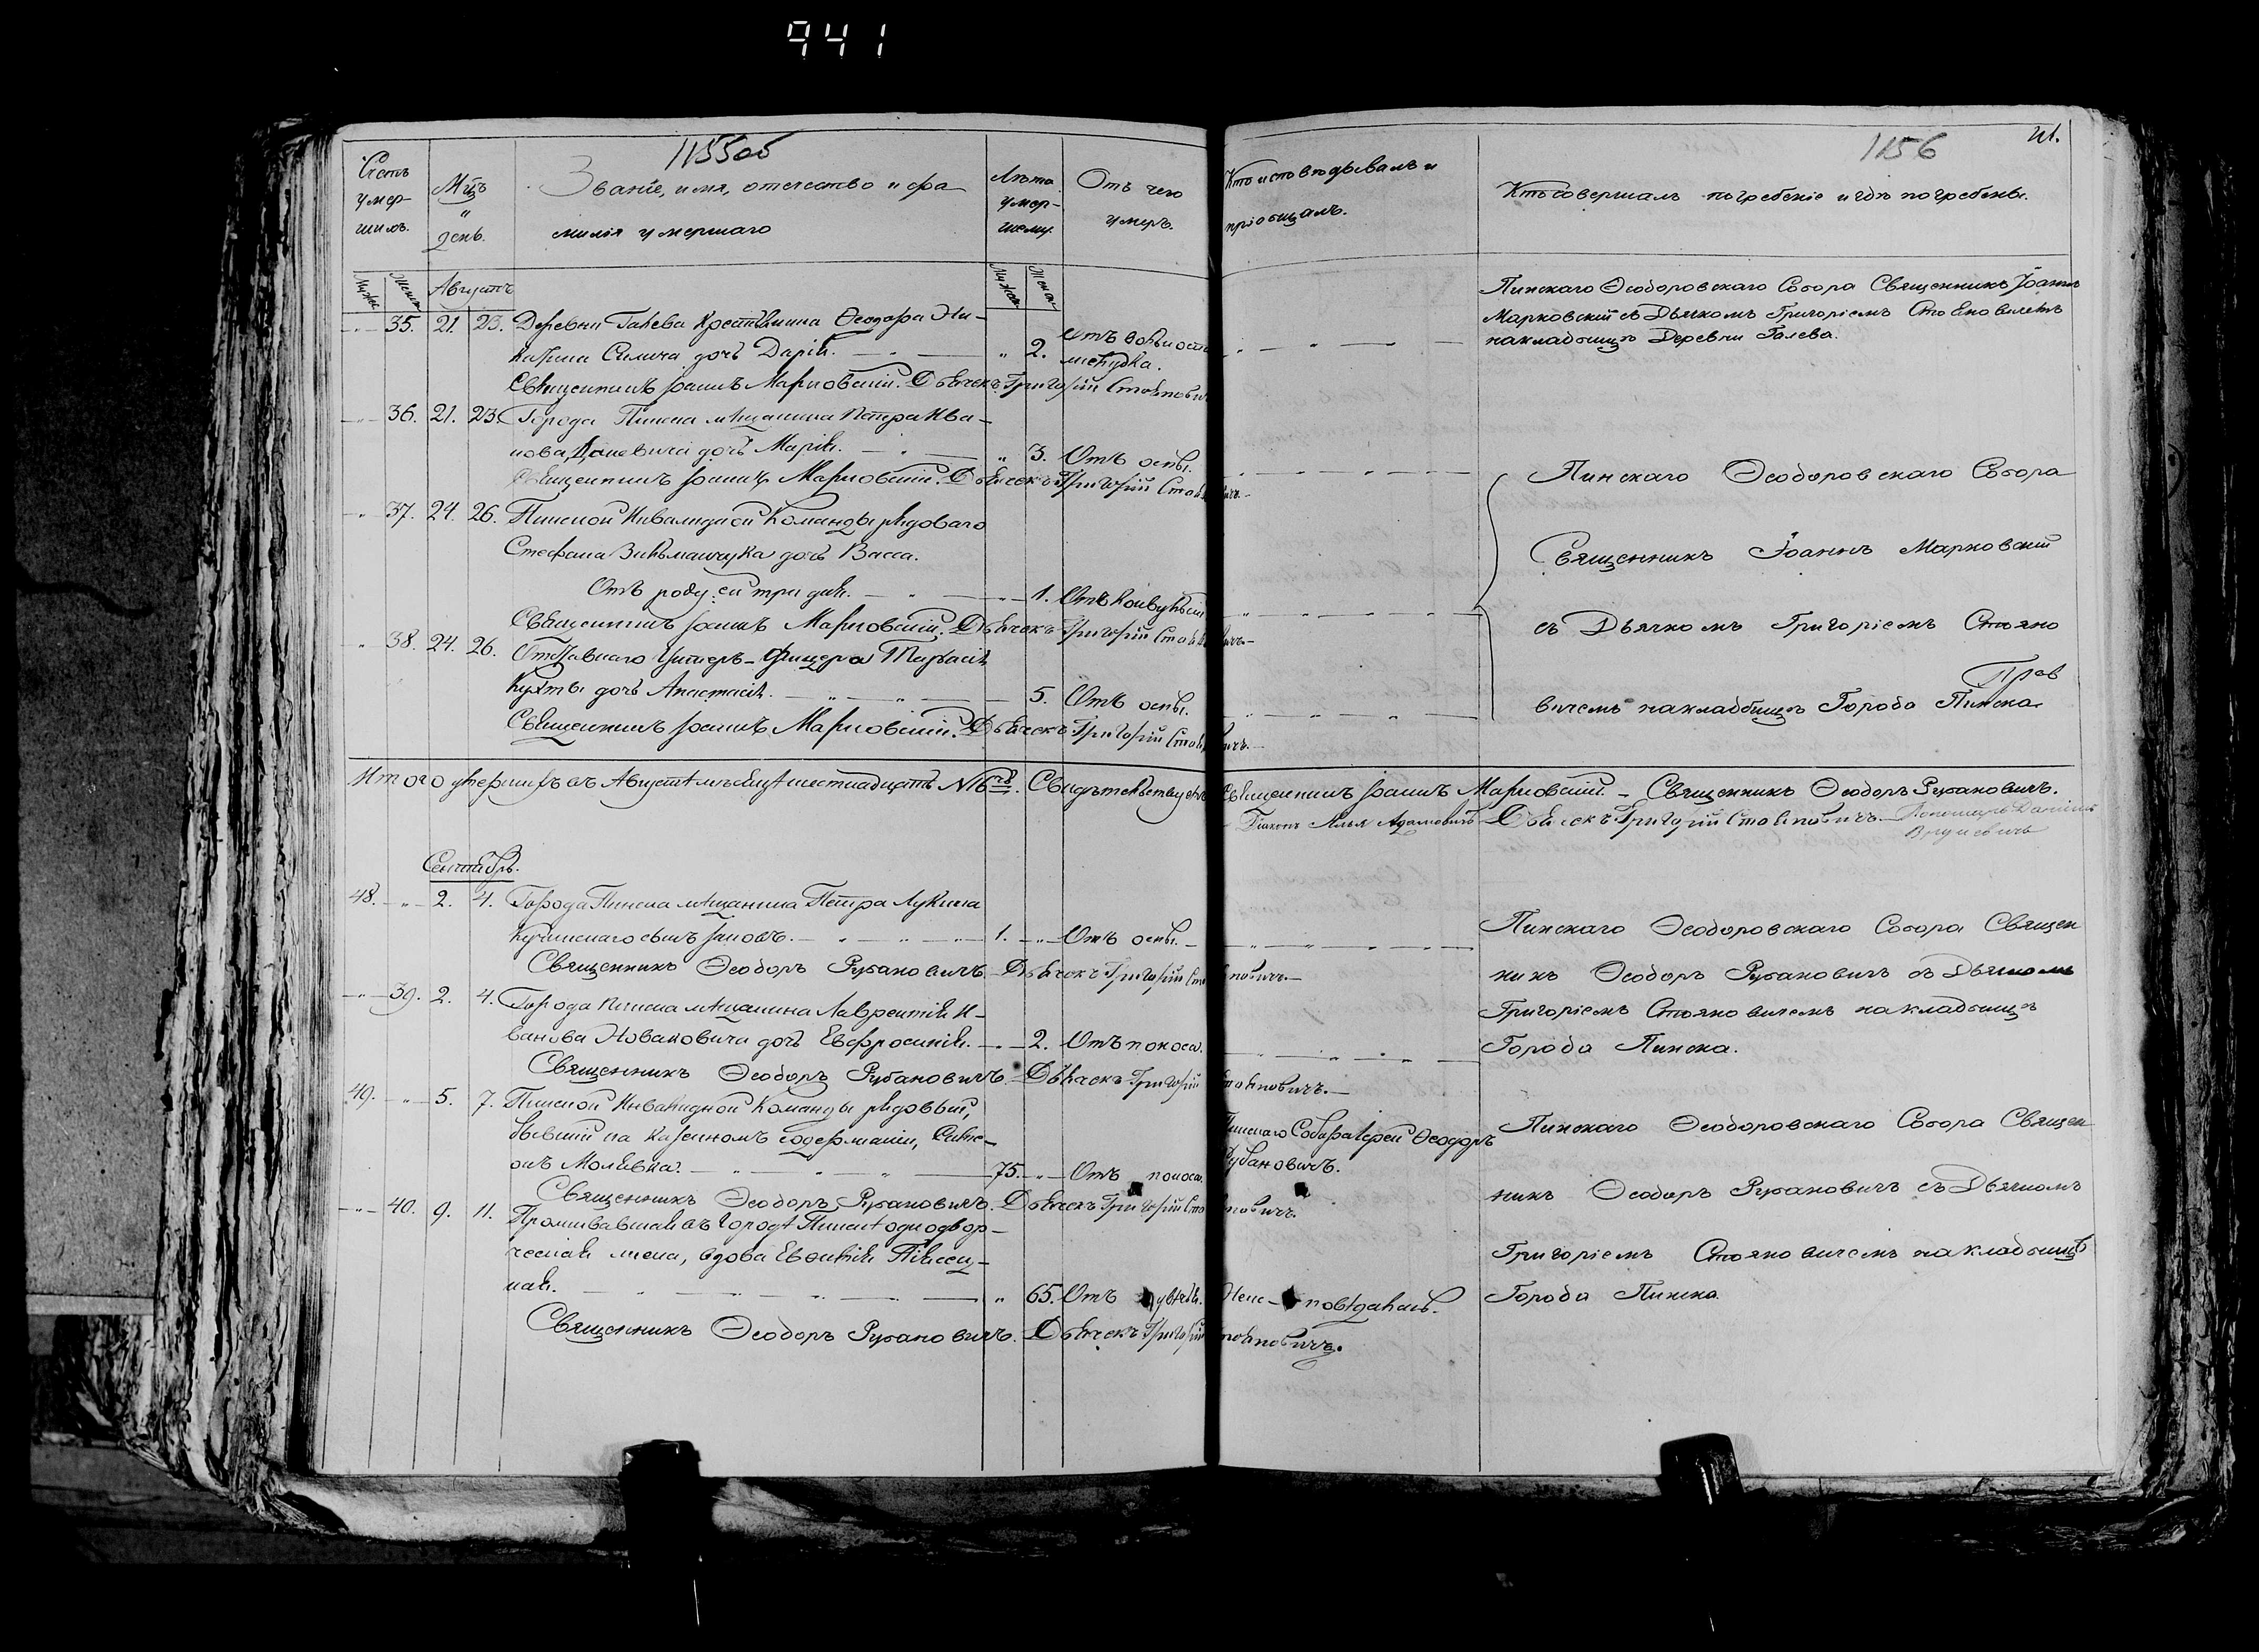 941
1155об
Счетъ умер-шихъ.
Мцъ " день.
Званіе, имя, отечество и фа-
милія умершаго
Лѣта умер-шему.
Отъ чего умеръ.
Мужес. Женск.
Августъ
Мужес. Женск.
35. 21. 23. Деревни Галева крестьянина Ѳеодора
дочь Дарія. " 2. Отъ
желудка.
Священникъ Іоаннъ Марковскій. Дьячекъ Григорій Стояновичъ
36. 21. 23. Города Пинска мѣщанина Петра Ива-
нова дочь Марія. " 3. Отъ оспы.
Священникъ Іоаннъ Марковскій. Дьячекъ Григорій Стояновичъ.
37. 24. 26. Пинской Инвалидной Команды рядоваго
Стефана дочь Васса.
Отъ роду ей три дня. 1. Отъ
Священникъ Іоаннъ Марковскій. Дьячекъ Григорій Стояновичъ.
38. 24. 26. Отставнаго Унтеръ-Офицера Тарасія
Кухты дочь Анастасія. 5. Отъ оспы.
Священникъ Іоаннъ Марковскій. Дьячекъ Григорій Стояновичъ.
Итого умершихъ въ Августѣ мѣсяцѣ шестнадцать №16. Свидѣтельствуемъ Священникъ Іоаннъ Марковскій. – Священникъ Ѳеодоръ Рубановичъ.
Діаконъ Илья Адамовичъ Дьячекъ Григорій Стояновичъ. Пономарь
Сентябрь.
48. " 2. 4. Города Пинска мѣщанина Петра Лукина
сынъ Іаковъ. 1. " Отъ оспы.
Священникъ Ѳеодоръ Рубановичъ. Дьячекъ Григорій Стояновичъ.
" 39. 2. 4. Города Пинска мѣщанина Лаврентія И-
ванова Новаковича дочь Евфросинія. " 2. Отъ поноса.
Священникъ Ѳеодоръ Рубановичъ. Дьячекъ Григорій Стояновичъ.
49. " 5. 7. Пинской Инвалидной Команды рядовый,
бывшій на казенномъ содержаніи,
75. " Отъ поноса.
Священникъ Ѳеодоръ Рубановичъ. Дьячекъ Григорій Стояновичъ.
" 40. 9. 11. Проживавшая въ городѣ Пинскѣ однодвор-
ческая жена, вдова Евѳимія
" 65. Отъ
Священникъ Ѳеодоръ Рубановичъ. Дьячекъ Григорій Стояновичъ.
1156
Кто исповѣдывалъ и
пріобщалъ.
Кто совершалъ погребеніе и гдѣ погребены.
Пинскаго Ѳеодоровскаго Собора Священникъ Іоаннъ
Марковскій съ Дьячкомъ Григоріемъ Стояновичемъ
на кладбищѣ Деревни Галева.
Пинскаго Ѳеодоровскаго Собора
Священникъ Іоаннъ Марковскій
съ Дьячкомъ Григоріемъ Стояно
вичемъ на кладбищѣ Города Пинска
Пинскаго Ѳеодоровскаго Собора Священ
никъ Ѳеодоръ Рубановичъ съ Дьячкомъ
Григоріемъ Стояновичемъ на кладбищѣ
Города Пинска.
Пинскаго Собора Іерей Ѳеодоръ
Рубановичъ.
Пинскаго Ѳеодоровскаго Собора Священ
никъ Ѳеодоръ Рубановичъ съ Дьячкомъ
Григоріемъ Стояновичемъ на кладбищѣ
Города Пинска.